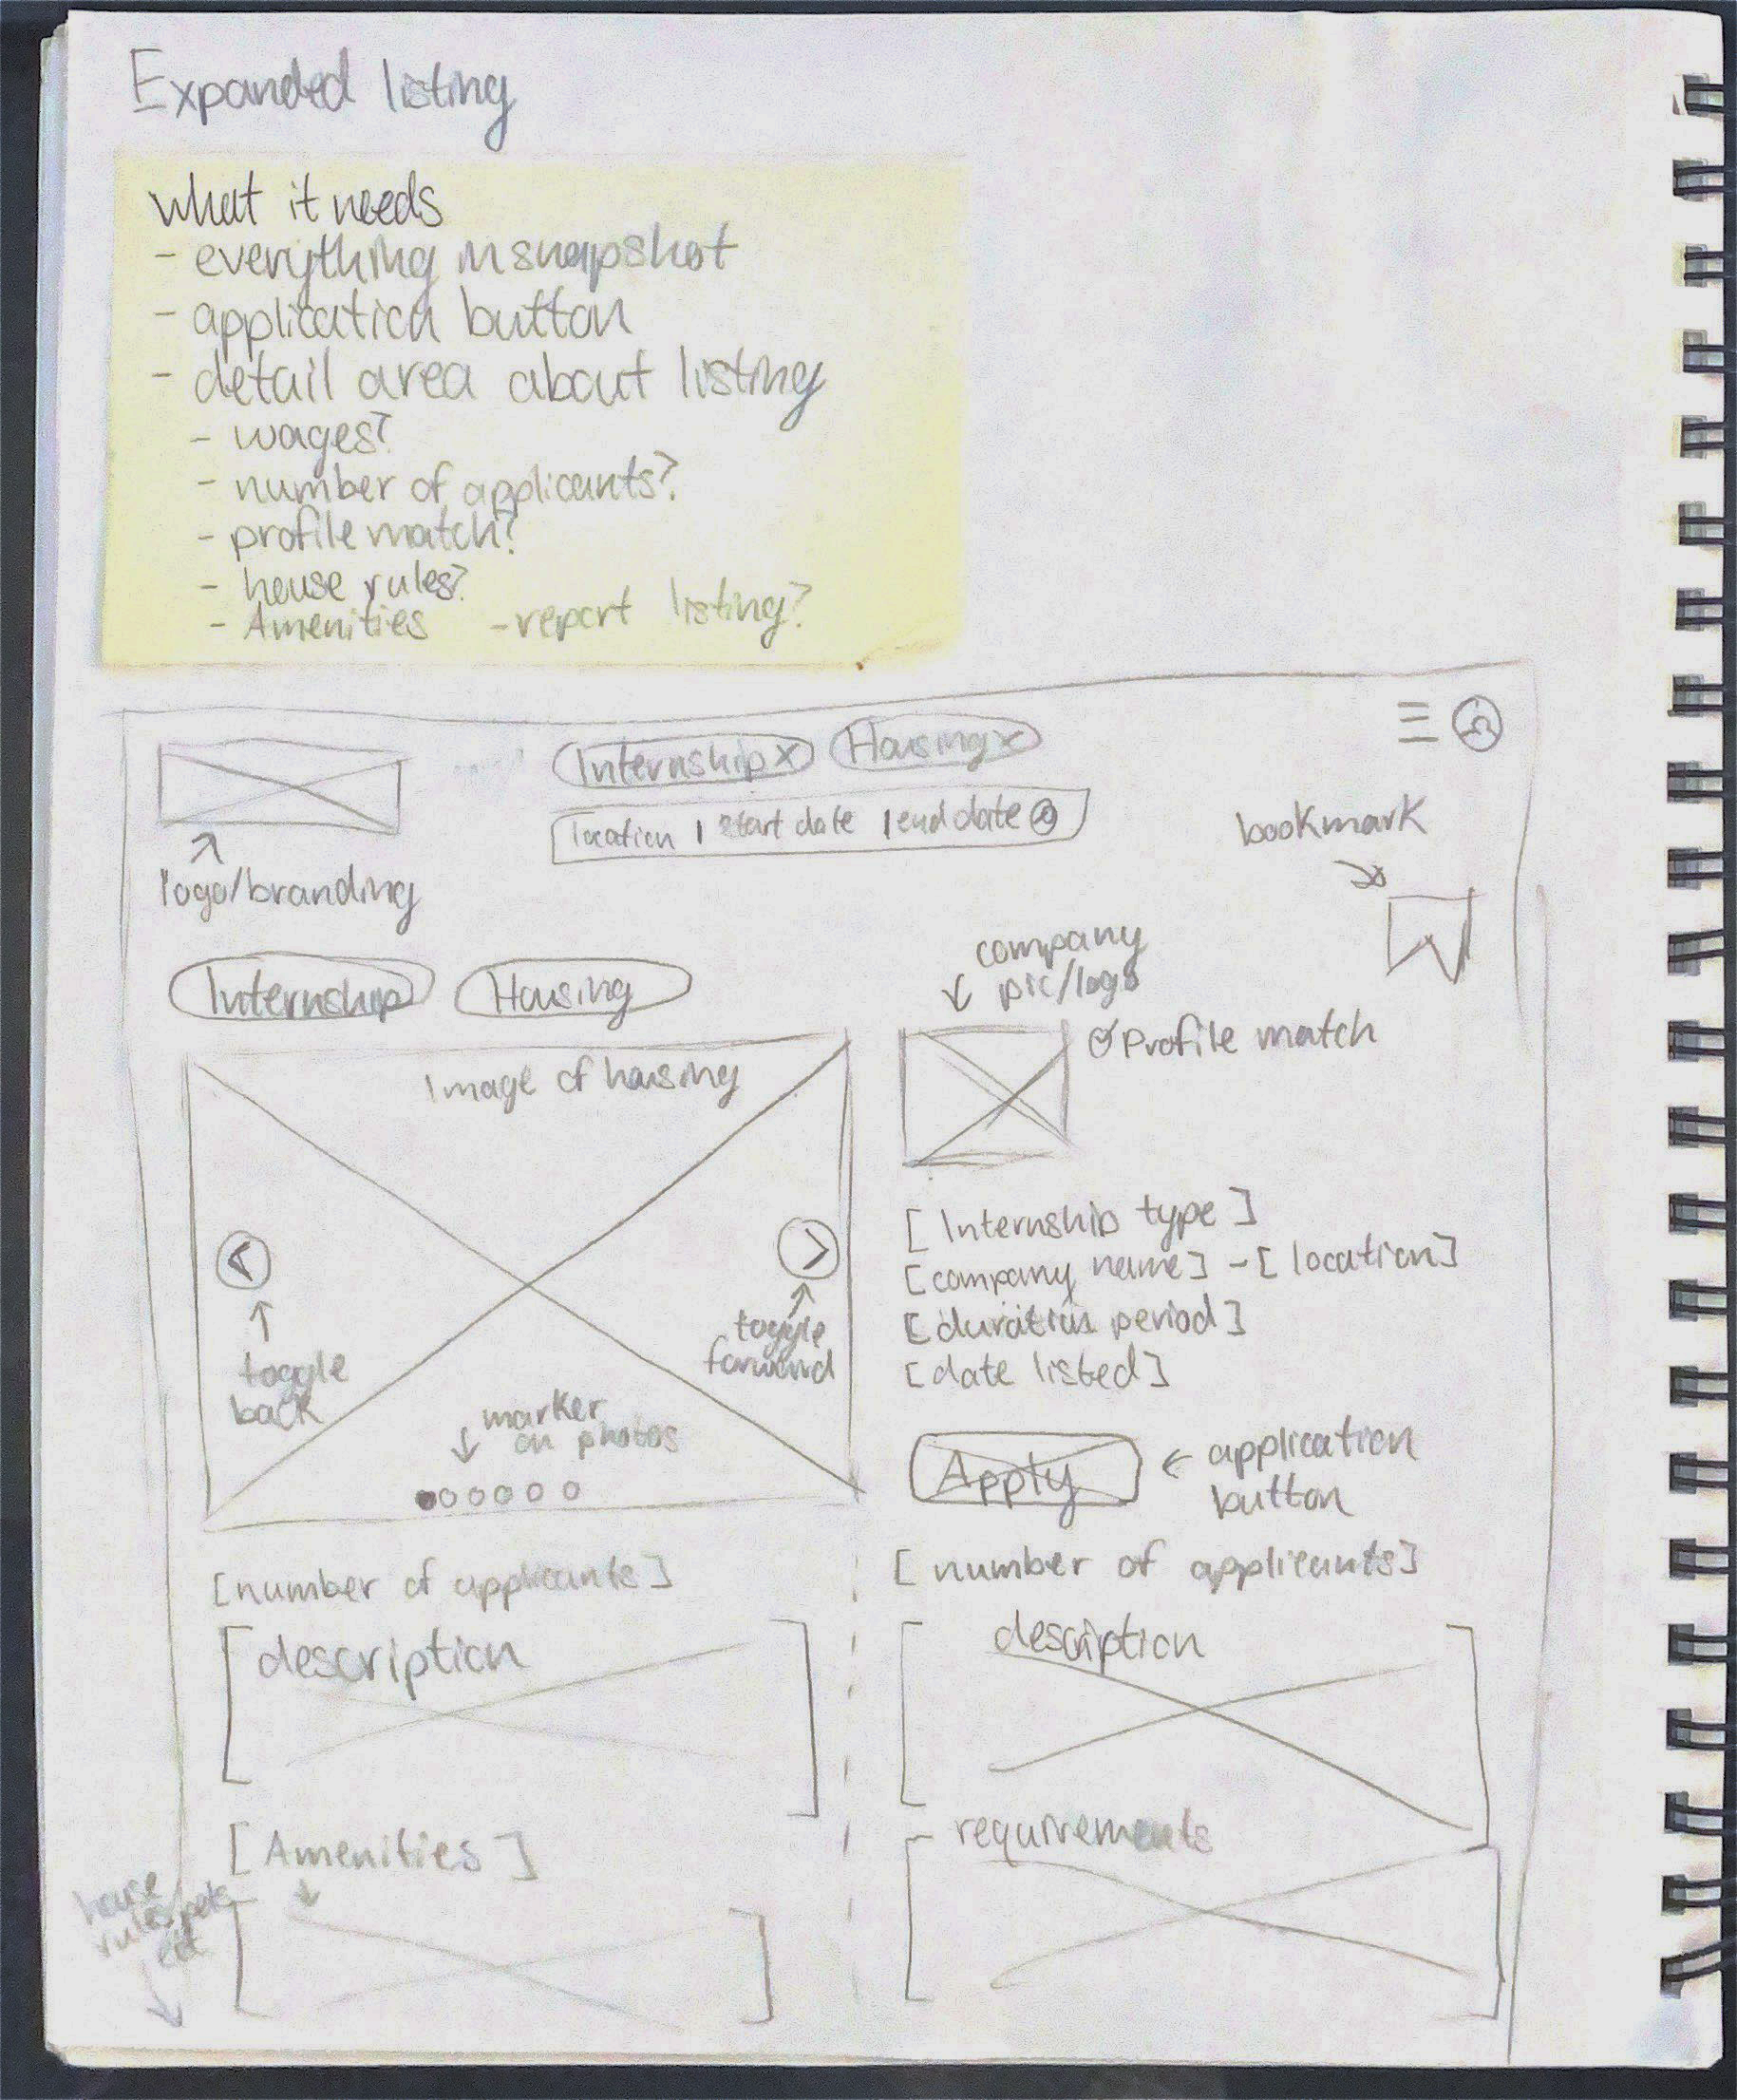 Expanded listing
what it needs
- everything in snapshot
- application button
- detail area about listing
- wages?
- number of applicants?
- profile match?
- house rules?
- Amenities - report listing?
Internship x Housing x
location | start date | end date
logo/branding
bookmark
Internship Housing
company
pic/logo
Profile match
Image of housing
[Internship type]
[company name] - [location]
[duration period]
[date listed]
toggle
back
toggle
forward
marker
on photos
Apply
application
button
[number of applicants]
[number of applicants]
[description]
[description]
[Amenities]
requirements
house
rules, pets